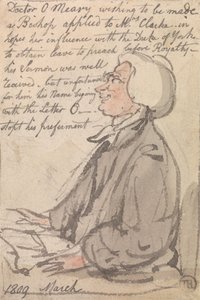 Doctor O Meary wishing to be made
a Bishop applied to Mrs Clarke in
hopes her influence with the Duke of York
to obtain leave to preach before Royalty
his Sermon was well
received, but unfortunate
for him his Name begining
with the Letter O
stopt his preferment
1809 March